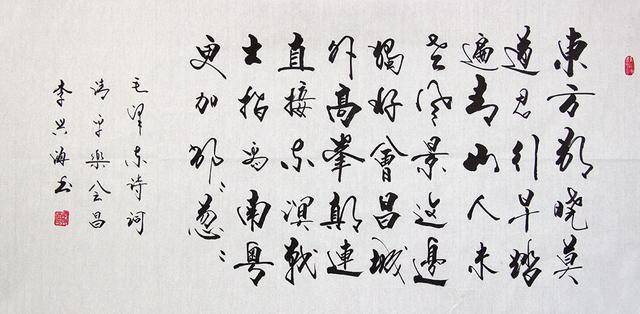 東方欲曉莫
道君行早踏
遍青山人未
老風景這邊
獨好會昌城
外高峯顛連
直接东溟戰
士指看南粵
更加郁〻葱〻
毛澤东詩詞
清平樂会昌
李兴海书